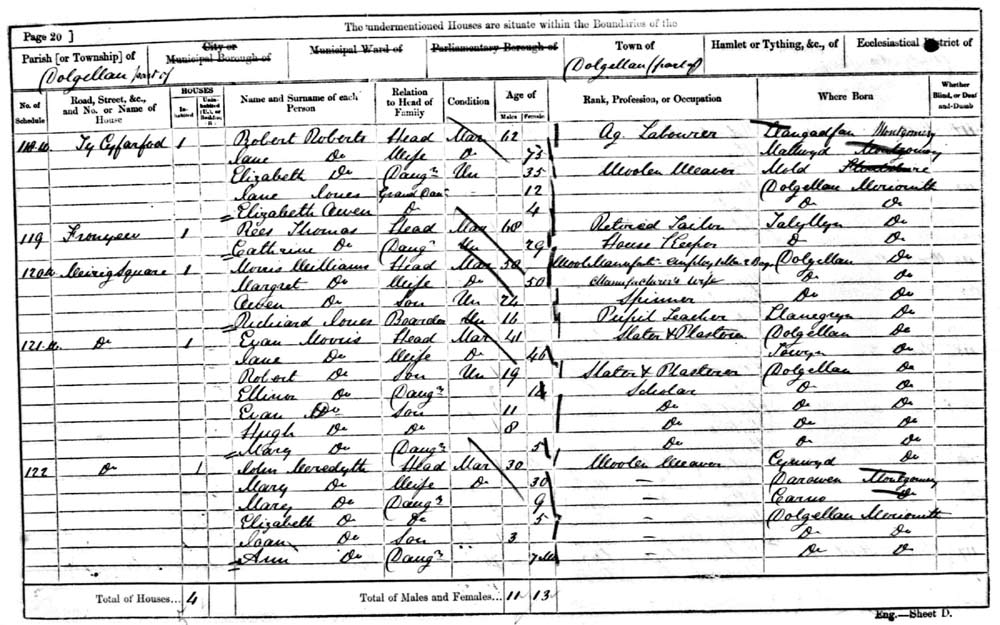 The undermentioned Houses are situate within the Boundaries of the
Page 20 ]
Parish [or Township] of City or Municipal Borough of Municipal Ward of Parliamentary Borough of Town of Hamlet or Tything, &c., of Ecclesiastical District of
Dolgellau /part of Dolgellau /part of
No. of Schedule Road, Street, &c., and No. or Name of House HOUSES Inhabited Uninhabited (U.), or Building B. Name and Surname of each Person Relation to Head of Family Condition Age of Males Females Rank, Profession, or Occupation Where Born Whether Blind, or Deaf-and-Dumb
118 Ty Cyfarfod 1 Robert Roberts Head Mar 62 Ag. Labourer Llangadfan Montgomery
Jane Do Wife Do 73 Mallwyd Montgomery
Elizabeth Do Daugr Un 35 Woolen Weaver Mold
Jane Jones Grand Daur 12 Dolgellau Merioneth
Elizabeth Owen Do 4 Do Do
119 Fronyser 1 Rees Thomas Head Mar 68 Retired Tailor Talyllyn Do
Catherine Do Daugr Un 29 House Keeper Do Do
120 Meirig Square 1 Morris Williams Head Mar 50 Wool Manufatr employ Dolgellau Do
Margret Do Wife Do 50 Manufacturer's wife Do Do
Owen Do Son Un 24 Spinner Do Do
Richard Jones Boarder Un 16 Pupil Teacher Llanegryn Do
121 Do 1 Evan Morris Head Mar 41 Slater & Plasterer Dolgellau Do
Jane Do Wife Do 46 Towyn Do
Robert Do Son Un 19 Slater & Plasterer Dolgellau Do
Ellinor Do Daugr 14 Scholar Do Do
Evan Do Son 11 Do Do Do
Hugh Do Do 8 Do Do Do
Mary Do Daugr 5 Do Do Do
122 Do 1 John Meredyth Head Mar 30 Woolen Weaver Cynwyd Do
Mary Do Wife Do 30 – Darowen Montgomery
Mary Do Daugr 9 – Carno Do
Elizabeth Do Do 5 – Dolgellau Merioneth
Do Son 3 – Do Do
Ann Do Daugr 7 Mo Do Do
Total of Houses... 4 Total of Males and Females... 11 13
Eng.—Sheet D.